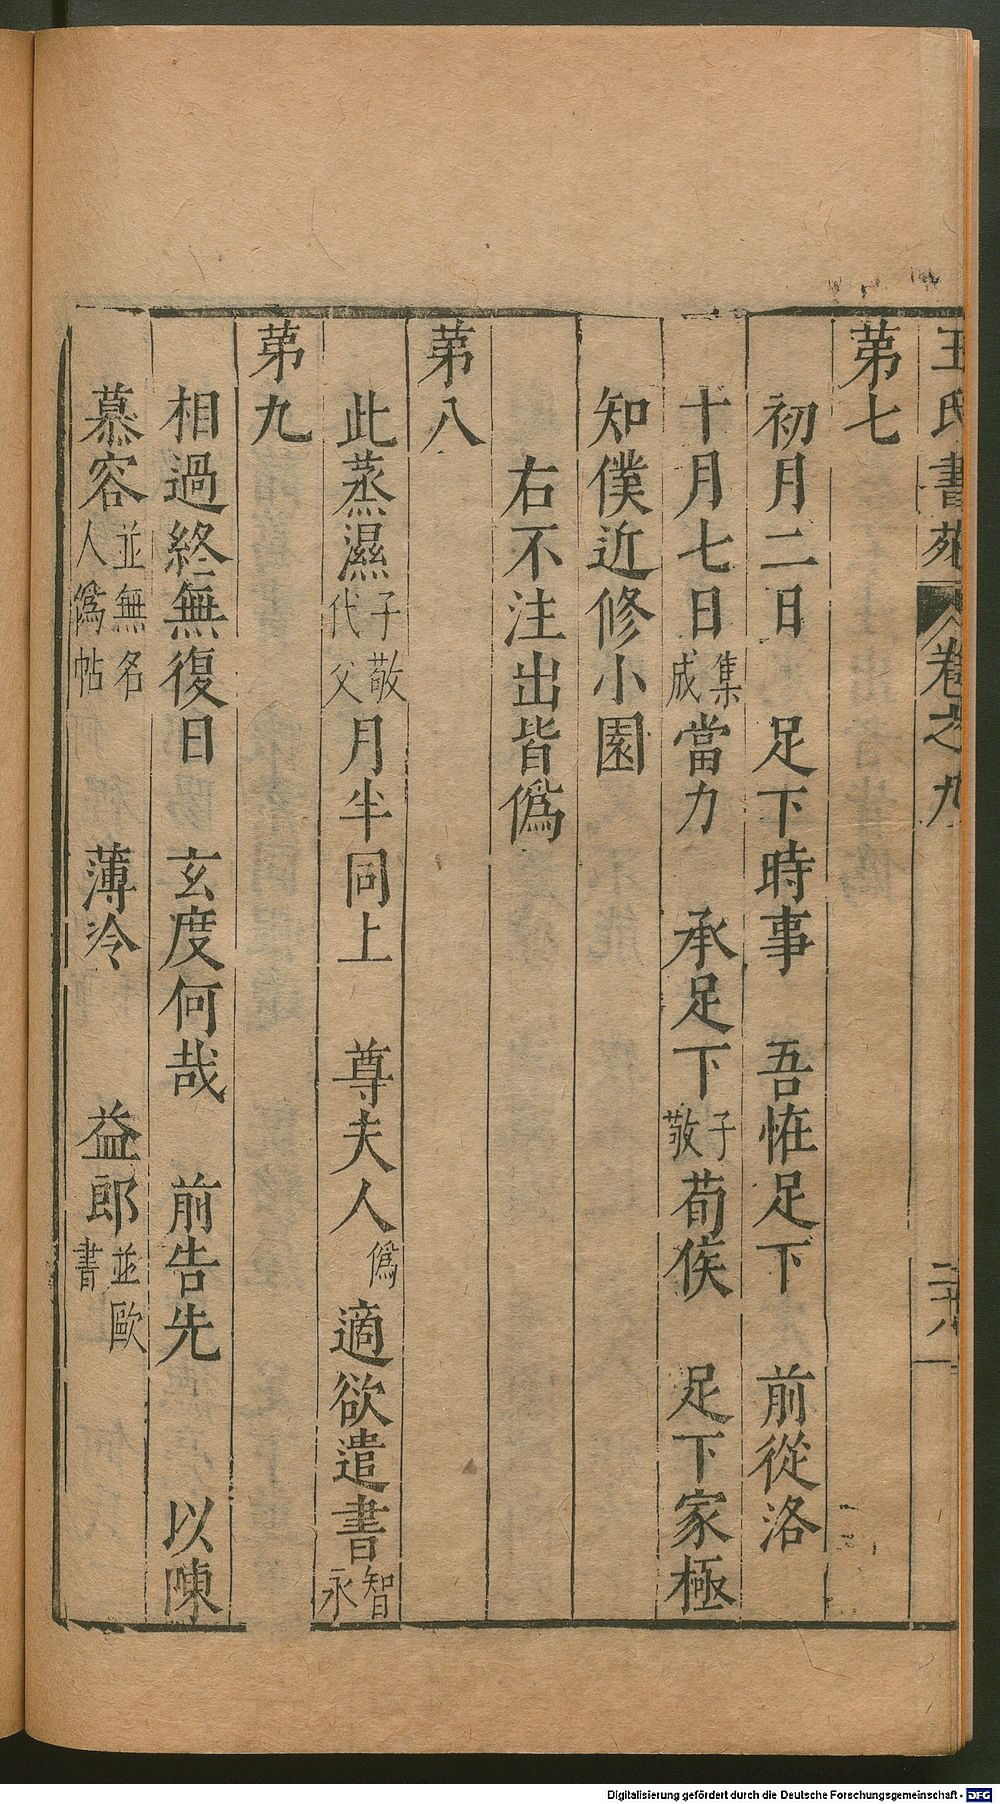 王氏書苑 卷之九 二十八
第七
初月二日 足下時事 吾恠足下 前從洛
十月七日集成當力 承足下子敬荀侯 足下家極
知僕近修小園
右不注出皆偽
第八
此蒸濕子敬代父月半同上 尊夫人偽適欲遣書智永
第九
相過終無復日 玄度何哉 前告先 以陳
慕容並無名人偽帖 薄冷 益郎並歐書
Digitalisierung gefördert durch die Deutsche Forschungsgemeinschaft - DFG